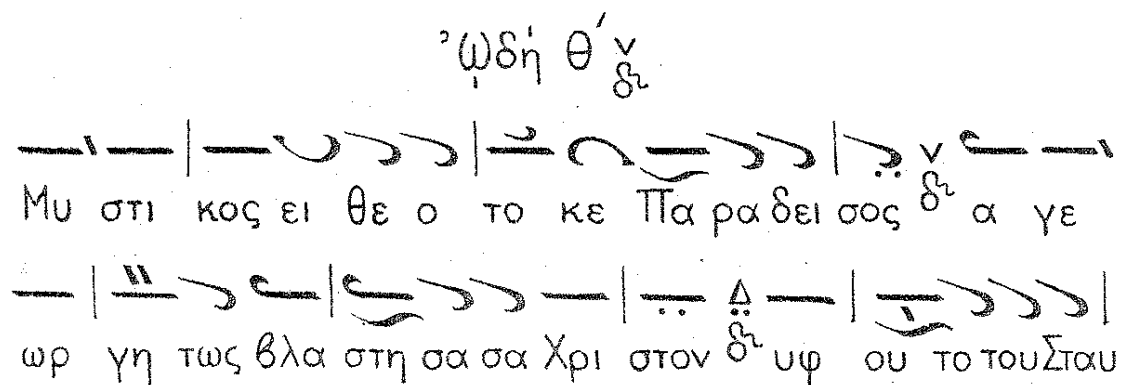 ᾨδή θ΄ ν δι
Μυ στι κος ει θε ο το κε Πα ρα δει σος ν δι α γε
ωρ γη τως βλα στη σα σα Χρι στον Δ δι υφ ου το του Σταυ